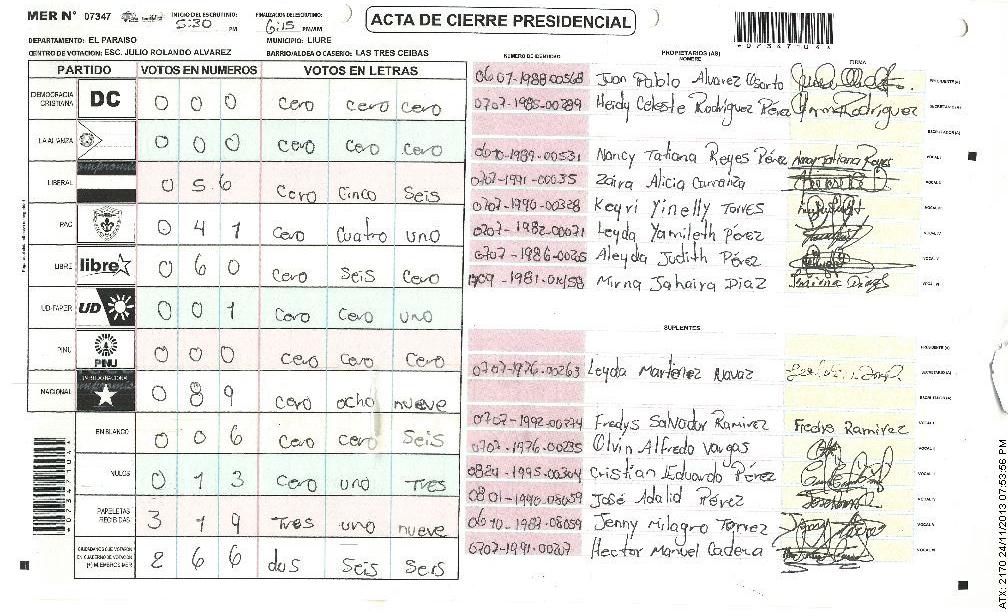 MER N° 07347
INICIO DEL ESCRUTINIO: 5:30 PM
FINALIZACION DEL ESCRUTINIO: 6:15 PM/AM
ACTA DE CIERRE PRESIDENCIAL
DEPARTAMENTO: EL PARAISO
MUNICIPIO: LIURE
CENTRO DE VOTACION: ESC. JULIO ROLANDO ALVAREZ
BARRIO/ALDEA O CASERIO: LAS TRES CEIBAS
PARTIDO VOTOS EN NUMEROS VOTOS EN LETRAS
DEMOCRACIA CRISTIANA DC 0 0 0 cero cero cero
LA ALIANZA 0 0 0 cero cero cero
LIBERAL 0 5 6 Cero Cinco Seis
PAC 0 4 1 cero Cuatro uno
LIBRE libre 0 6 0 Cero Seis Cero
UD-FAPER UD 0 0 1 Cero Cero uno
PINU PINU 0 0 0 cero Cero Cero
NACIONAL 0 8 9 Cero ocho nueve
EN BLANCO 0 0 6 cero cero Seis
NULOS 0 1 3 Cero uno Tres
PAPELETAS RECIBIDAS 3 1 9 Tres uno nueve
CIUDADANOS QUE VOTARON EN CUADERNO DE VOTACION (+) MIEMBROS MER 2 6 6 dos Seis Seis
NUMERO DE IDENTIDAD
PROPIETARIOS (AS)
NOMBRE
FIRMA
0607-1988-00568 Juan Pablo Alvarez PRESIDENTE (A)
0707-1985-00289 Heidy Celeste Rodríguez Pérez SECRETARIO (A)
ESCRUTADOR (A)
0610-1989-00531 Nancy Tatiana Reyes Pérez Nancy Tatiana Reyes VOCAL I
0707-1991-00035 Zaira Alicia Carranza VOCAL II
0707-1990-00328 Keyri Yinelly Torres VOCAL III
0707-1982-00071 Leyda Yamileth Pérez VOCAL IV
0707-1986-00265 Aleyda Judith Pérez VOCAL V
Mirna Jahaira Diaz VOCAL VI
SUPLENTES
PRESIDENTE (A)
0707-1976-00263 Leyda Martinez SECRETARIO (A)
ESCRUTADOR (A)
0707-1992-00274 Fredys Salvador Ramirez Fredys Ramirez VOCAL I
0707-1976-00235 Olvin Alfredo Vargas VOCAL II
0824-1995-00304 Cristian Eduardo Pérez VOCAL III
0801-1990-08059 José Adalid Pérez VOCAL IV
Jenny Milagro Torrez VOCAL V
0707-1991-00207 Hector Manuel Cadera VOCAL VI
ATX: 2170 24/11/2013 07:53:56 PM